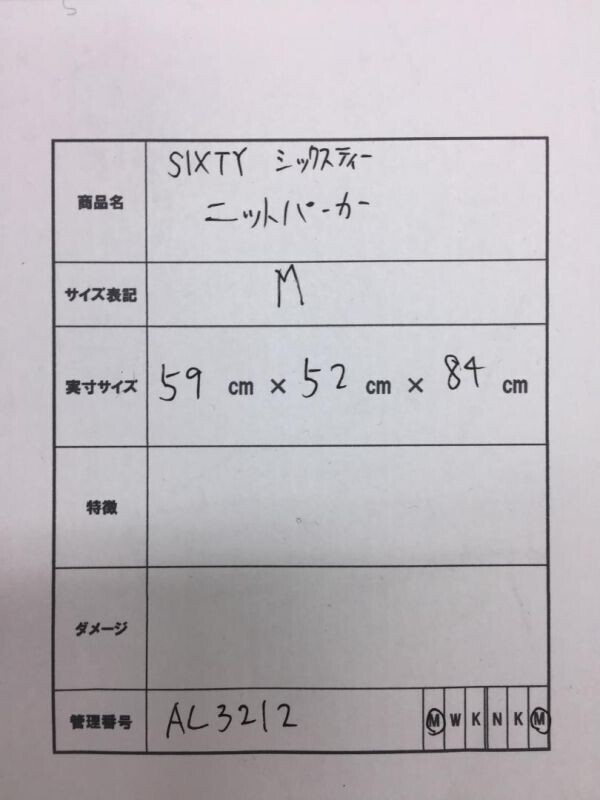 商品名
SIXTY シックスティー
ニットパーカー
サイズ表記 M
実寸サイズ 59 cm × 52 cm × 84 cm
特徴
ダメージ
管理番号 AL3212 M W K N K M